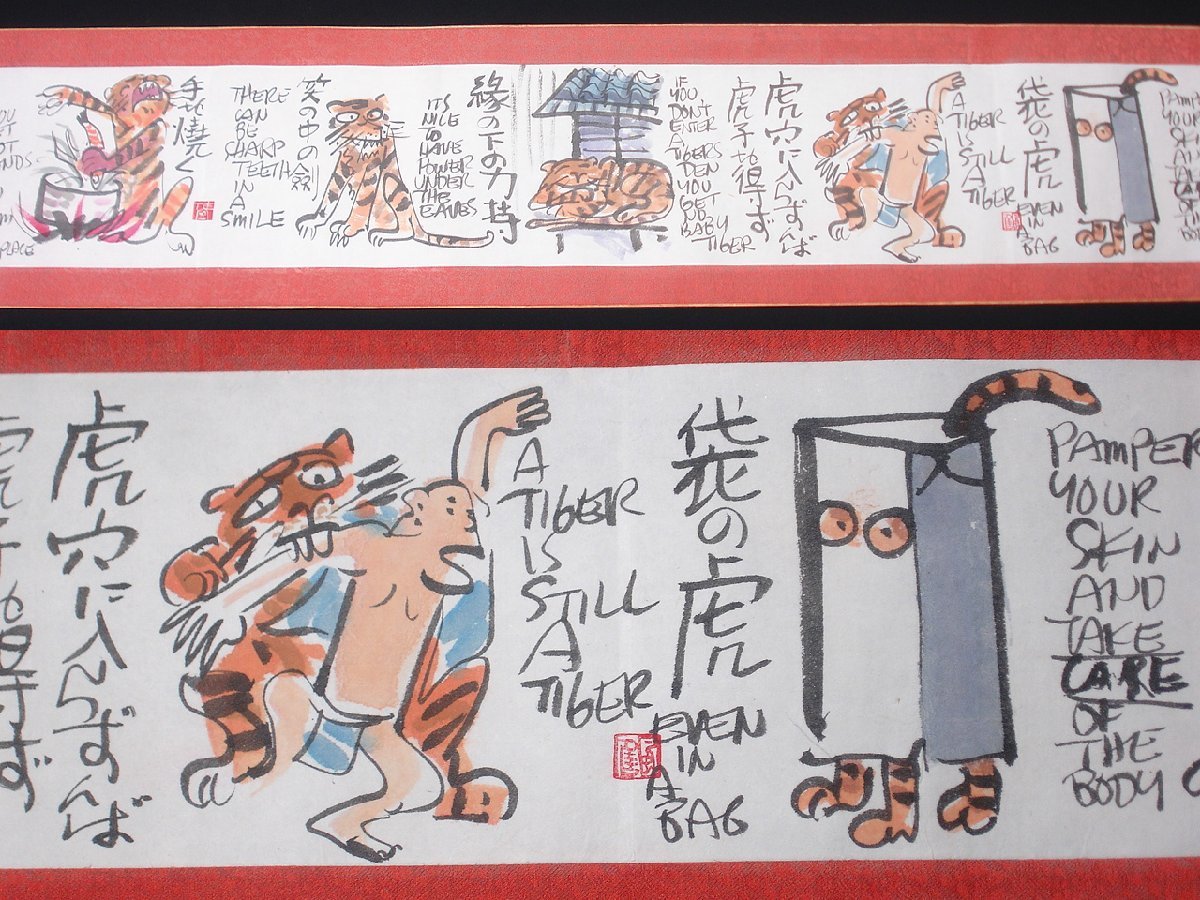 PAMPER
YOUR
SKIN
AND
TAKE
CARE
OF THE
BODY
袋の虎
A
TIGER
IS
STILL
A
TIGER
EVEN
IN
A
BAG
虎穴に入らずんば
虎子を得ず
IF
YOU
DON'T
ENTER
A
TIGERS
DEN
YOU
GET
NO
BABY
TIGER
縁の下の力持
ITS
NICE
TO
HAVE
POWER
UNDER
THE
EAVES
笑の中の剣
THERE
CAN
BE
SHARP
TEETH
IN
A
SMILE
手を焼く
PAMPER
YOUR
SKIN
AND
TAKE
CARE
OF
THE
BODY
袋の虎
A
TIGER
IS
STILL
A
TIGER
EVEN
IN
A
BAG
虎穴に入らずんば